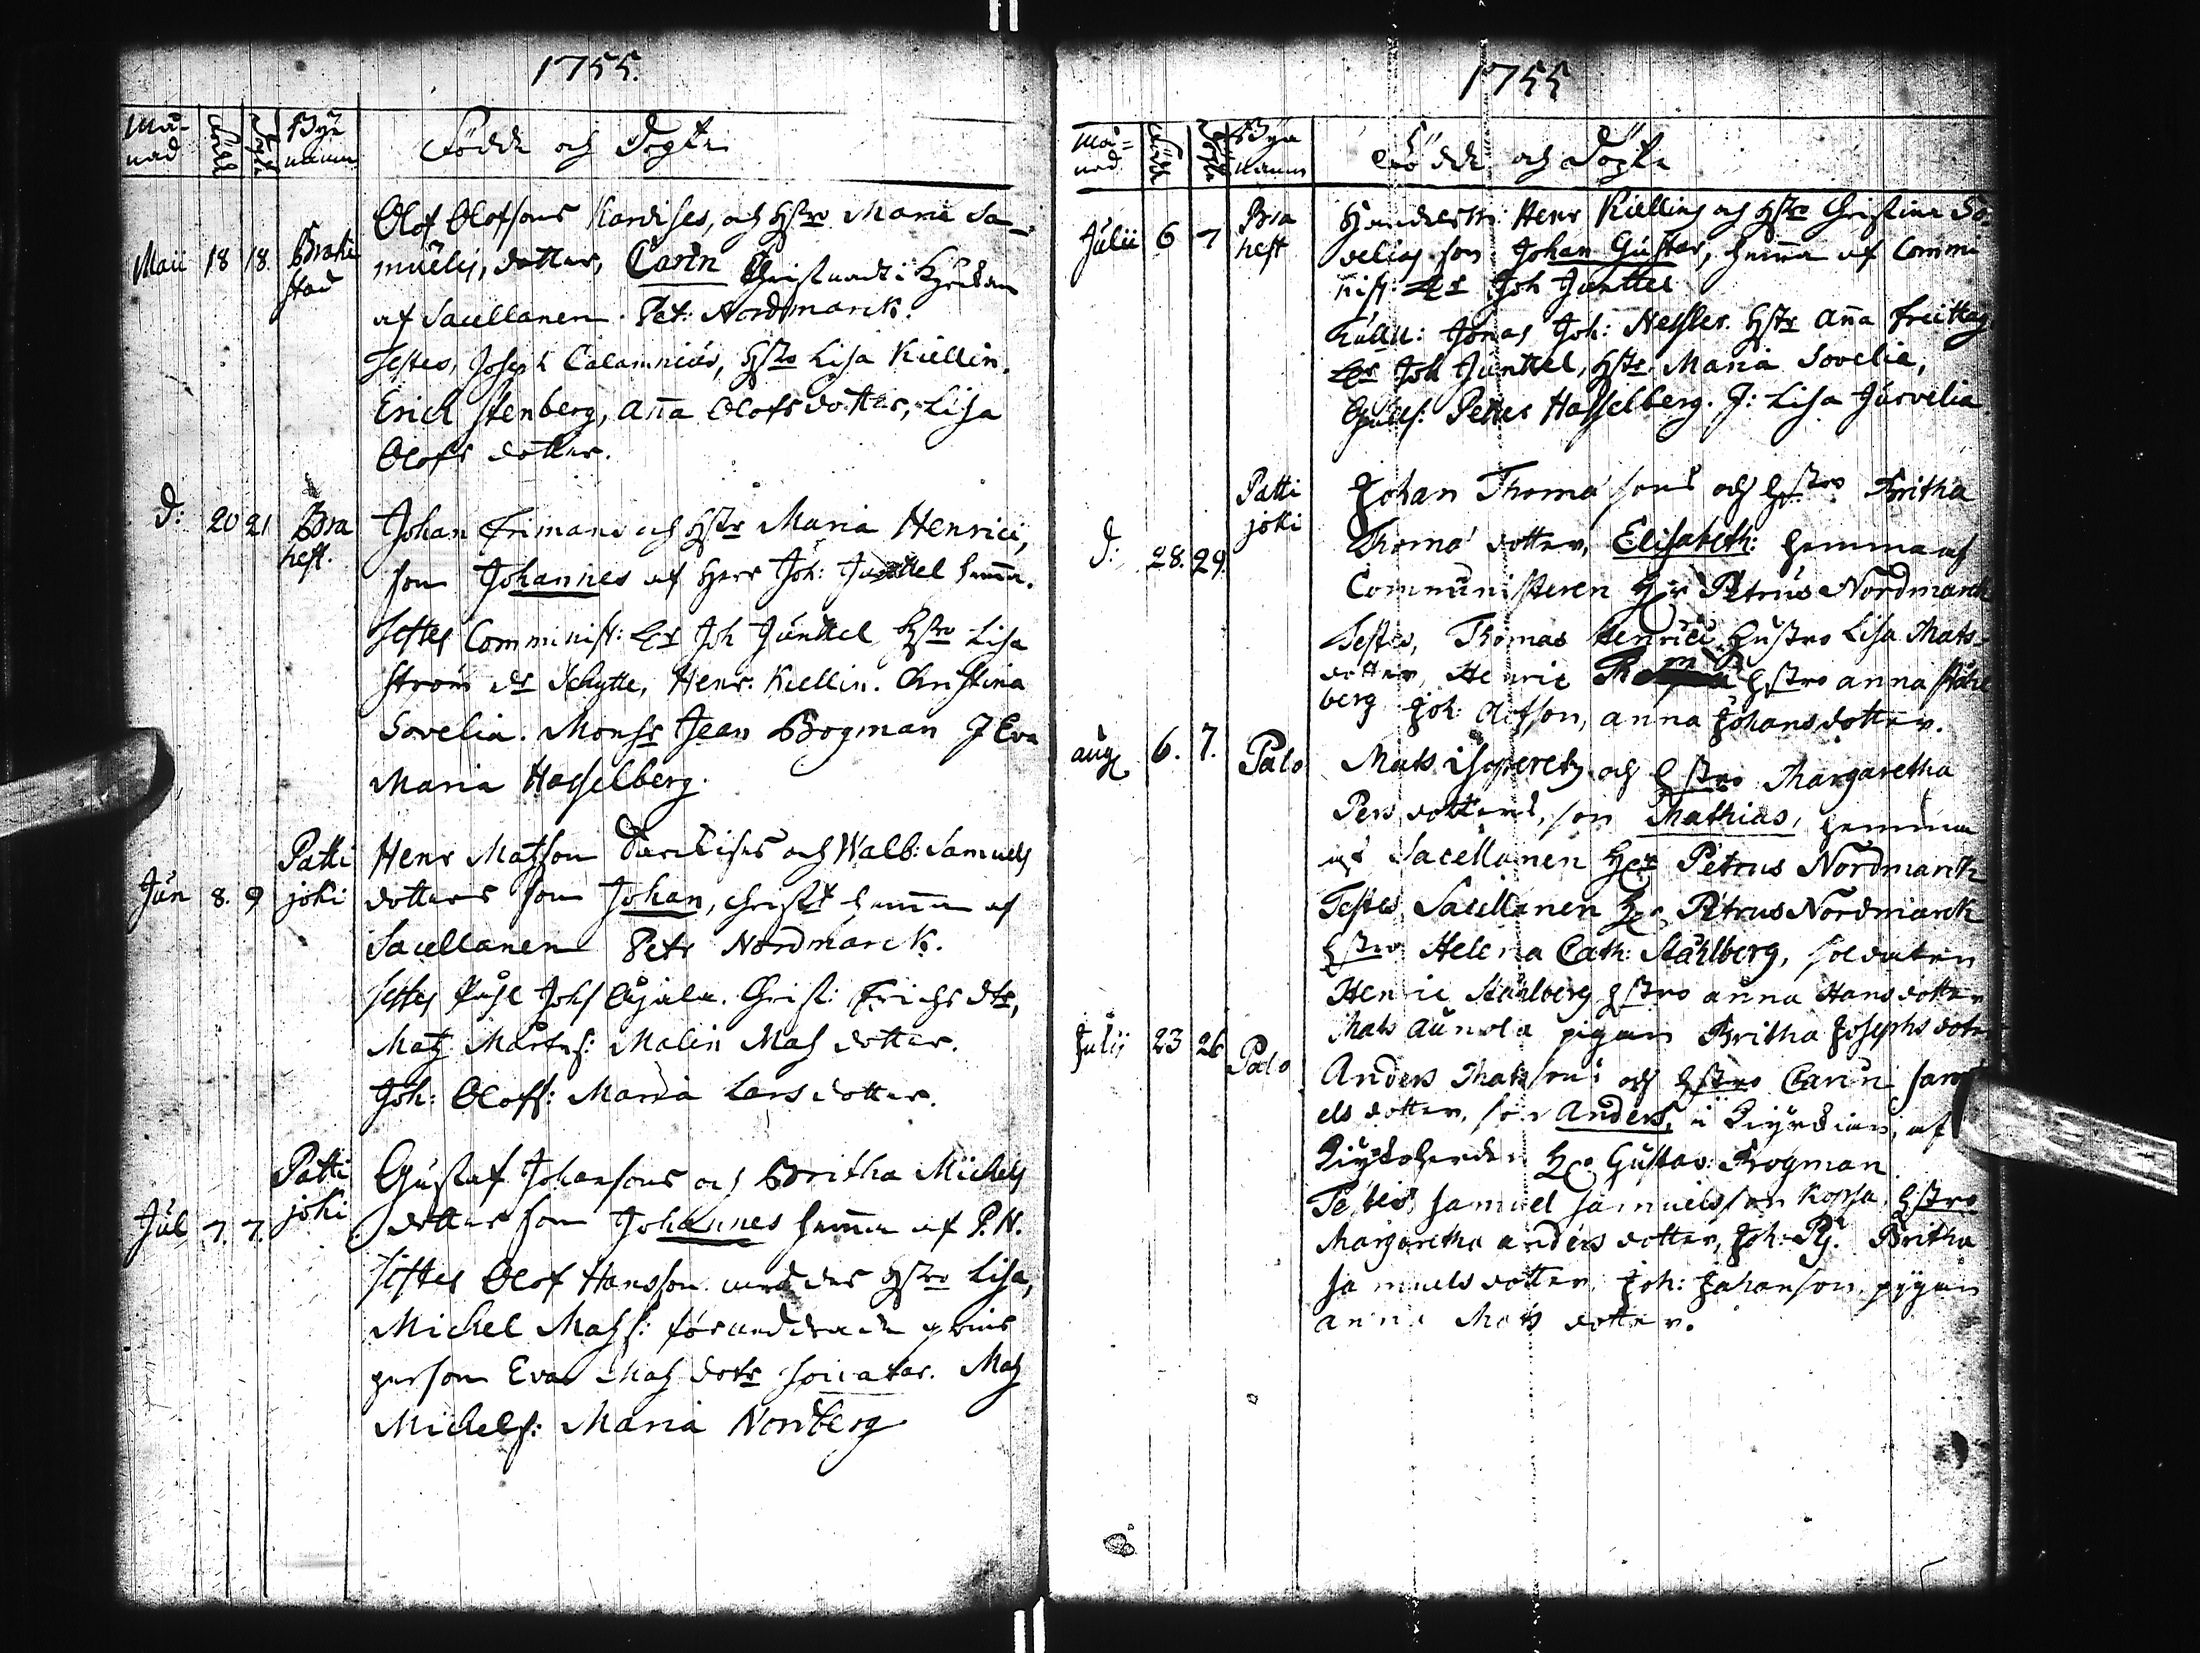 1755.
Må-
nad
Född
Döpt
Bÿe
namn
Födde och Döpte
Maii 18 18. Brahe
stad
Olof Olofsons Kardises, och Hstro Maria Sa-
muelis, dotter, Carin Christnadt i Kyrkan
af Sacellanen Pet: Nordmarck.
Testes, Joseph Calamnius, Hstro Lisa Kiellin.
Erich Stenberg, Anna Olofsdotter, Lisa
Olofs dotter.
D: 20 21 Bra
hest.
Johan Frimans och Hstr Maria Henrici,
son Johannes af Herr Joh: Junttel hemma.
Testes Comminist: Hr Joh Junttel Hstro Lisa
Ström Schytte, Henr. Kiellin. Christina
Sovelia. Monsr Jean Brogman J Eva
Maria Hasselberg.
Jun 8. 9 Patti
joki
Henr Matzson och Walb: Samuels
dotters son Johan, Christt hemma af
Sacellanen Petr Nordmarck.
Testes Påhl Johs Christ: Erichs dtr,
Matz Mårtens: Malin Mas dotter.
Joh: Olofs: Maria Lars dotter.
Jul 7. 7. Patti
joki
Gustaf Johansons och Britha Michels
dotters son Johannes hemma af P.N.
Testes Olof Hansson med des Hstro Lisa,
Michel Mats:
person Eva Mats dotr Mats
Michels: Maria Nordberg
1755
Må-
nad
Född
Döpt
Bÿa
namn
Födde och Döpte
Julii 6 7 Bra
hest
Henr Kielling och Hstro Christina So-
velias son Johan Gustav, hemma af Commi
nist: Hr Joh Junttel
Jonas Joh: Nessler. Hstr Anna Freittag
Hr Joh Junttel, Hstr Maria Sovelia,
Petter Hasselberg. J: Lisa Jusvelia
D: 28. 29. Patti
joki
Johan Thomæ sons och Hstro Britha
Thomæ dotter, Elisabeth: hemma af
Communisteren Hr Petrus Nordmarck
Testes, Thomas Henrici Hustro Lisa Mats-
dotter, Henric Hstro Anna Ståhl
berg Joh: Olofson, Anna Johansdotter.
aug 6. 7. Palo
Mats och Hstro Margaretha
Pers dotters, son Mathias, hemma
af Sacellanen Hr Petrus Nordmarck
Testes Sacellanen Hr Petrus Nordmarck
Hstro Helena Cath: Ståhlberg, soldaten
Henric Ståhlberg Hstro Anna Hans dotter
Mats Aunola pigan Britha Josephs dotr
Julij 23 26 Palo
Anders Matssons och Hstro Carin Samu
els dotter, son Anders, i Kiyrkian, af
Kiyrkoherden Hr Gustav: Brogman
Testes Samuel Samuelsson Kopsa Hstro
Margaretha Anders dotter, Joh: Pj. Britha
Samuels dotter Joh: Johanson, pygan
Anna Mats dotter.